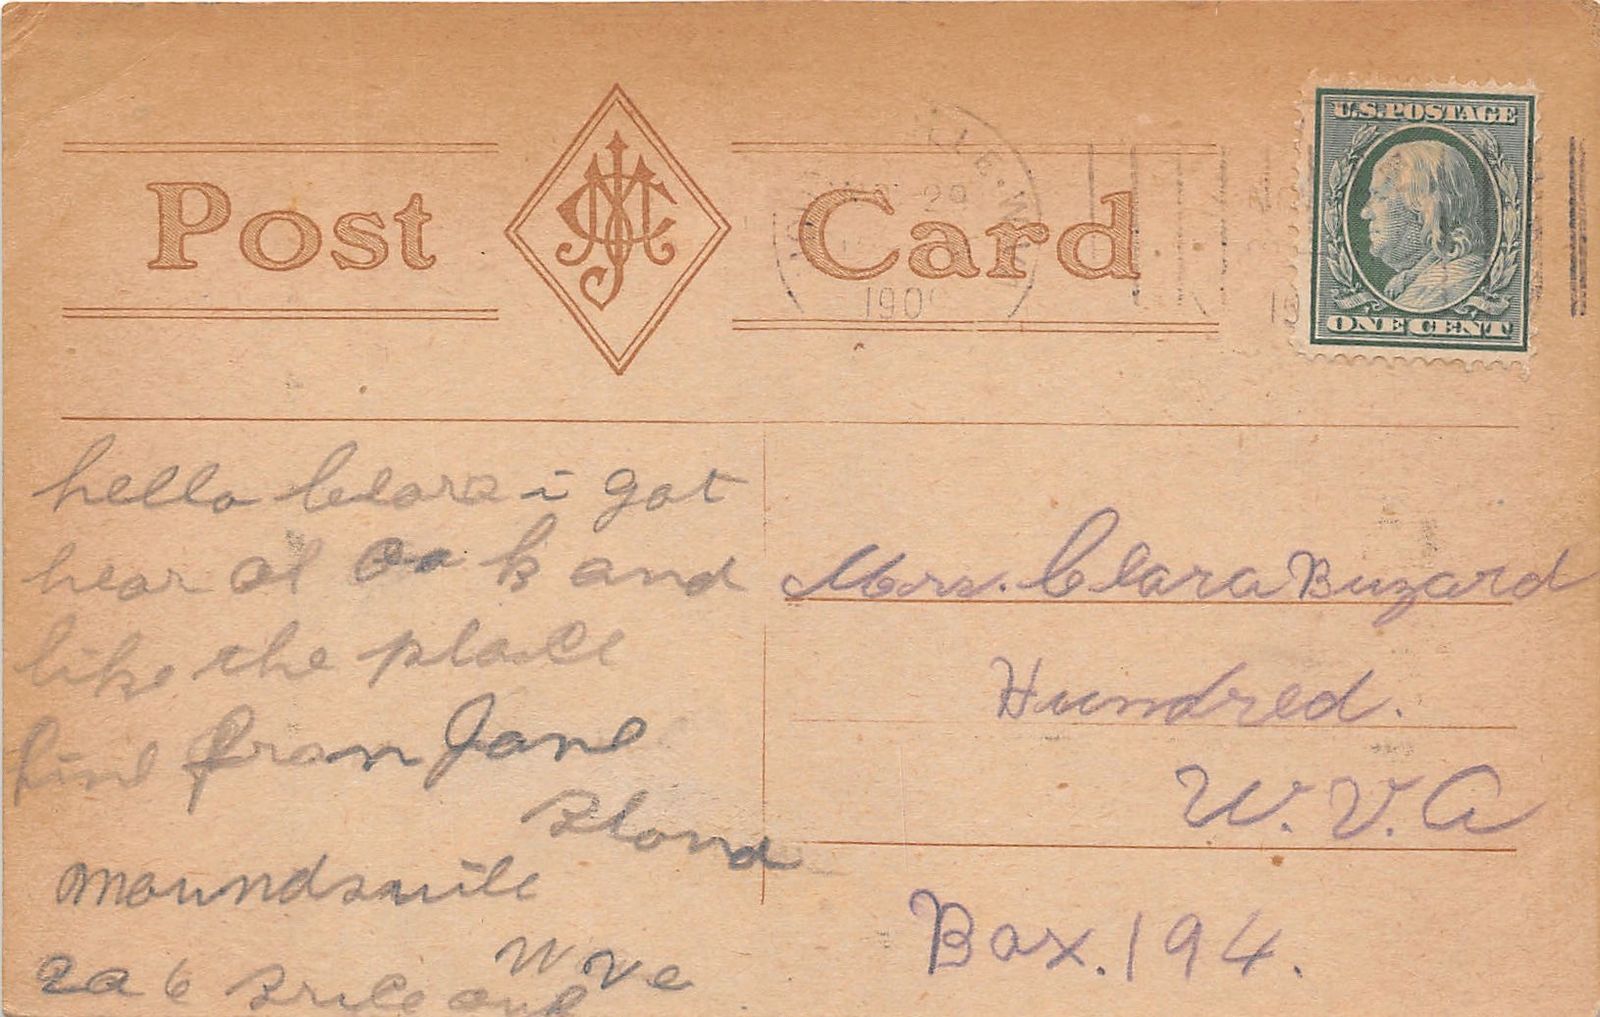 Post Card
U.S. POSTAGE
ONE CENT
LLE. W.
29
190
hello Clara i got
hear al and
like the place
fine from Jane
moundsvile
W Va
Mrs. Clara Buzard
Hundred.
W. V. A
Box. 194.